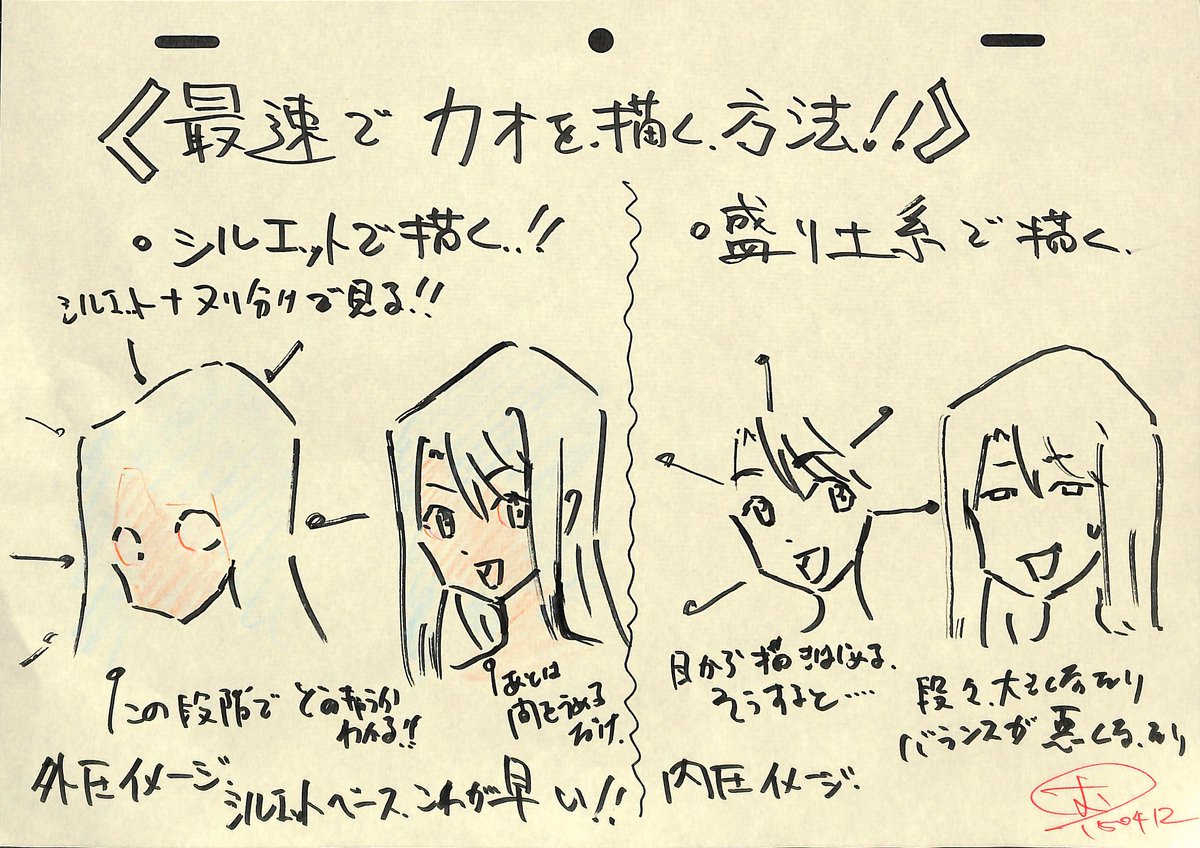 《最速でカオを描く方法!!》
・シルエットで描く!!
シルエット+ヌリ分けで見る!!
この段階で
わかる!!
あとは
間をうめる
だけ.
外圧イメージ.
シルエットベース.これが早い!!
・盛り土系で描く.
目から描きはじめる.
そうすると……
段々、大きくなったり
バランスが悪くなったり
内圧イメージ.
150412